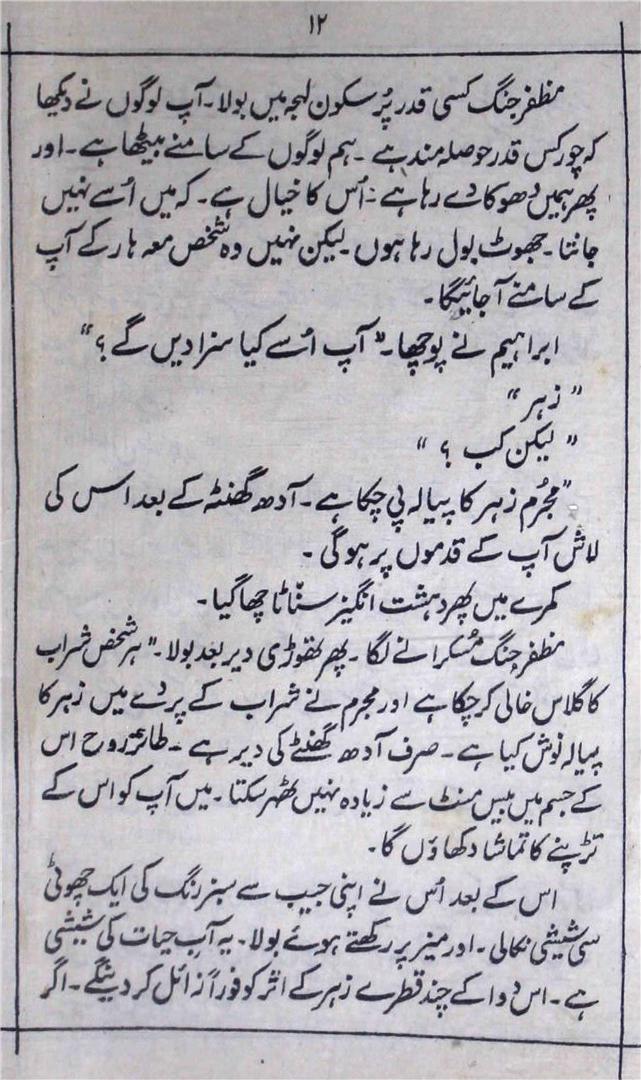 ۱۲
مظفر جنگ کسی قدر پُر سکون لہجہ میں بولا۔ آپ لوگوں نے دیکھا
کہ چور کس قدر حوصلہ مند ہے۔ ہم لوگوں کے سامنے بیٹھا ہے۔ اور
پھر ہمیں دھوکا دے رہا ہے۔ اُس کا خیال ہے۔ کہ میں اُسے نہیں
جانتا۔ جھوٹ بول رہا ہوں۔ لیکن نہیں وہ شخص معہ ہار کے آپ
کے سامنے آ جائیگا۔
ابراہیم نے پوچھا۔ "آپ اُسے کیا سزا دیں گے ؟"
"زہر"
"لیکن کب ؟"
"مجرُم زہر کا پیالہ پی چکا ہے۔ آدھ گھنٹہ کے بعد اس کی
لاش آپ کے قدموں پر ہو گی۔
کمرے میں پھر دہشت انگیز سنّاٹا چھا گیا۔
مظفر جنگ مُسکرانے لگا۔ پھر تھوڑی دیر بعد بولا۔ "ہر شخص شراب
کا گلاس خالی کر چکا ہے اور مجرم نے شراب کے پردے میں زہر کا
پیالہ نوش کیا ہے۔ صرف آدھ گھنٹے کی دیر ہے۔ طائرِ روح اس
کے جسم میں بیس منٹ سے زیادہ نہیں ٹھہر سکتا۔ میں آپ کو اس کے
تڑپنے کا تماشا دکھاؤں گا۔
اس کے بعد اُس نے اپنی جیب سے سبز رنگ کی ایک چھوٹی
سی شیشی نکالی۔ اور میز پر رکھتے ہوئے بولا۔ یہ آبِ حیات کی شیشی
ہے۔ اس دوا کے چند قطرے زہر کے اثر کو فوراً زائل کر دینگے۔ اگر